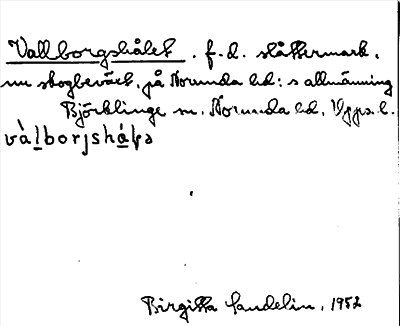 Vallborgshålet. f.d. slåttermark,
nu skogbeväxt, på Norunda hd:s allmänning
Björklinge sn. Norunda hd. Upps. l.
vàlborjshálə
Birgitta Sandelin. 1952